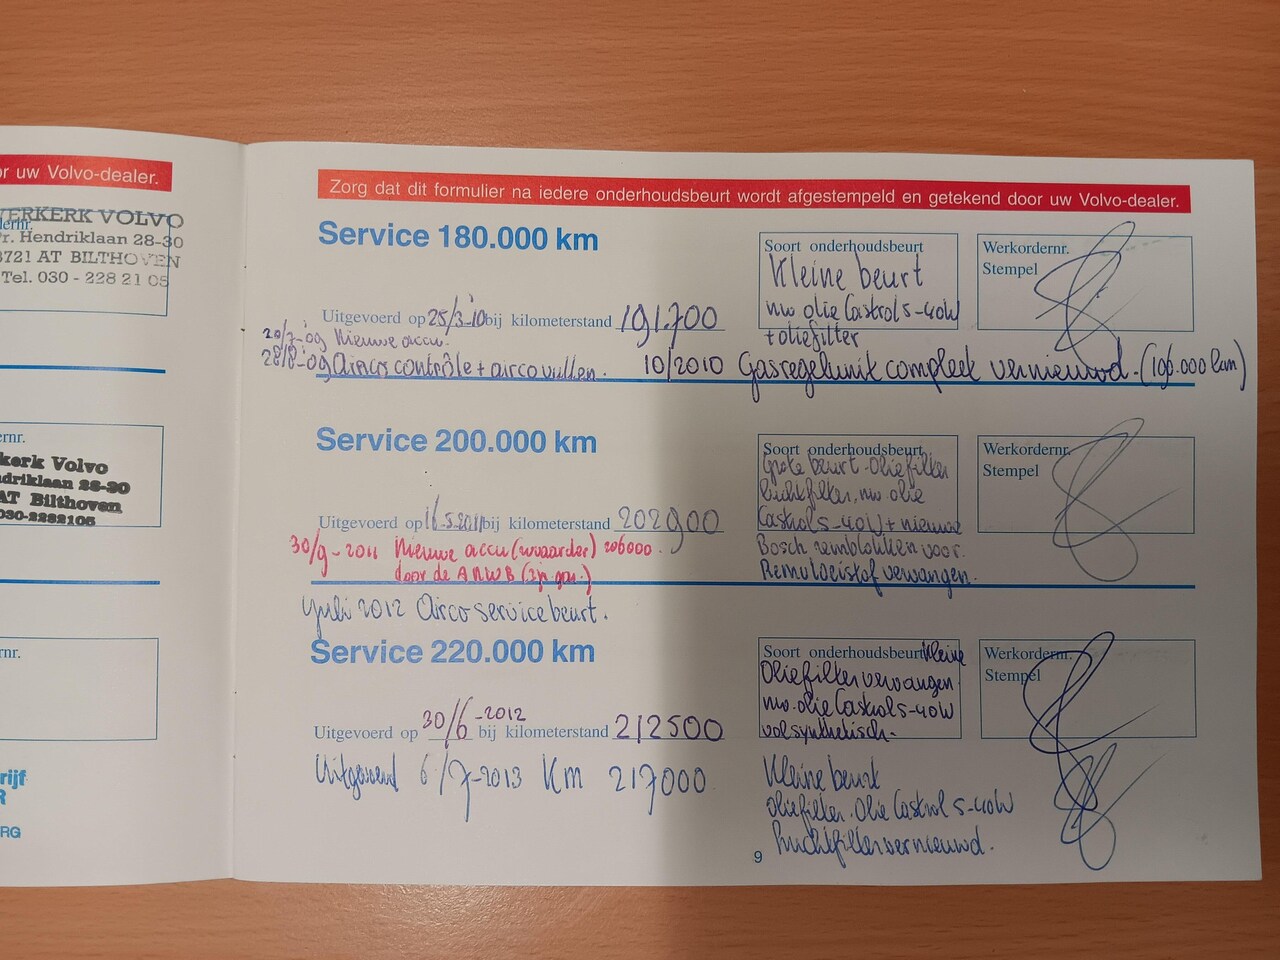 or uw Volvo-dealer.
VERKERK VOLVO
dernr.
Pr. Hendriklaan 28-30
3721 AT BILTHOVEN
Tel. 030 - 228 21 05
ernr.
kerk Volvo
ndriklaan 28-30
AT Bilthoven
030-2282105
rnr.
rijf
R
RG
Zorg dat dit formulier na iedere onderhoudsbeurt wordt afgestempeld en getekend door uw Volvo-dealer.
Service 180.000 km
Soort onderhoudsbeurt
Kleine beurt
nw olie Castrol 5-40W
+ oliefilter
Werkordernr.
Stempel
Uitgevoerd op 25/3-10 bij kilometerstand 191.700
20/7-09 Nieuwe accu.
28/8-09 Airco contrôle + airco vullen.
10/2010 Gasregelunit compleet vernieuwd. (196.000 km)
Service 200.000 km
Soort onderhoudsbeurt
Grote beurt. Oliefilter
Luchtfilter, nw olie
Castrol 5-40W + nieuwe
Bosch remblokken voor.
Remvloeistof vervangen.
Werkordernr.
Stempel
Uitgevoerd op 16-5-2011 bij kilometerstand 202900
30/9-2011 Nieuwe accu (zwaarder) 206000.
door de ANWB (3jr gar.)
juli 2012 Airco servicebeurt.
Service 220.000 km
Soort onderhoudsbeurt kleine
Oliefilter vervangen
nw. olie Castrol 5-40W
vol synthetisch.
Werkordernr.
Stempel
Uitgevoerd op 30/6-2012 bij kilometerstand 212500
Uitgevoerd 6/7-2013 Km 217000
Kleine beurt
Oliefilter. Olie Castrol 5-40W
Luchtfilter vernieuwd.
9